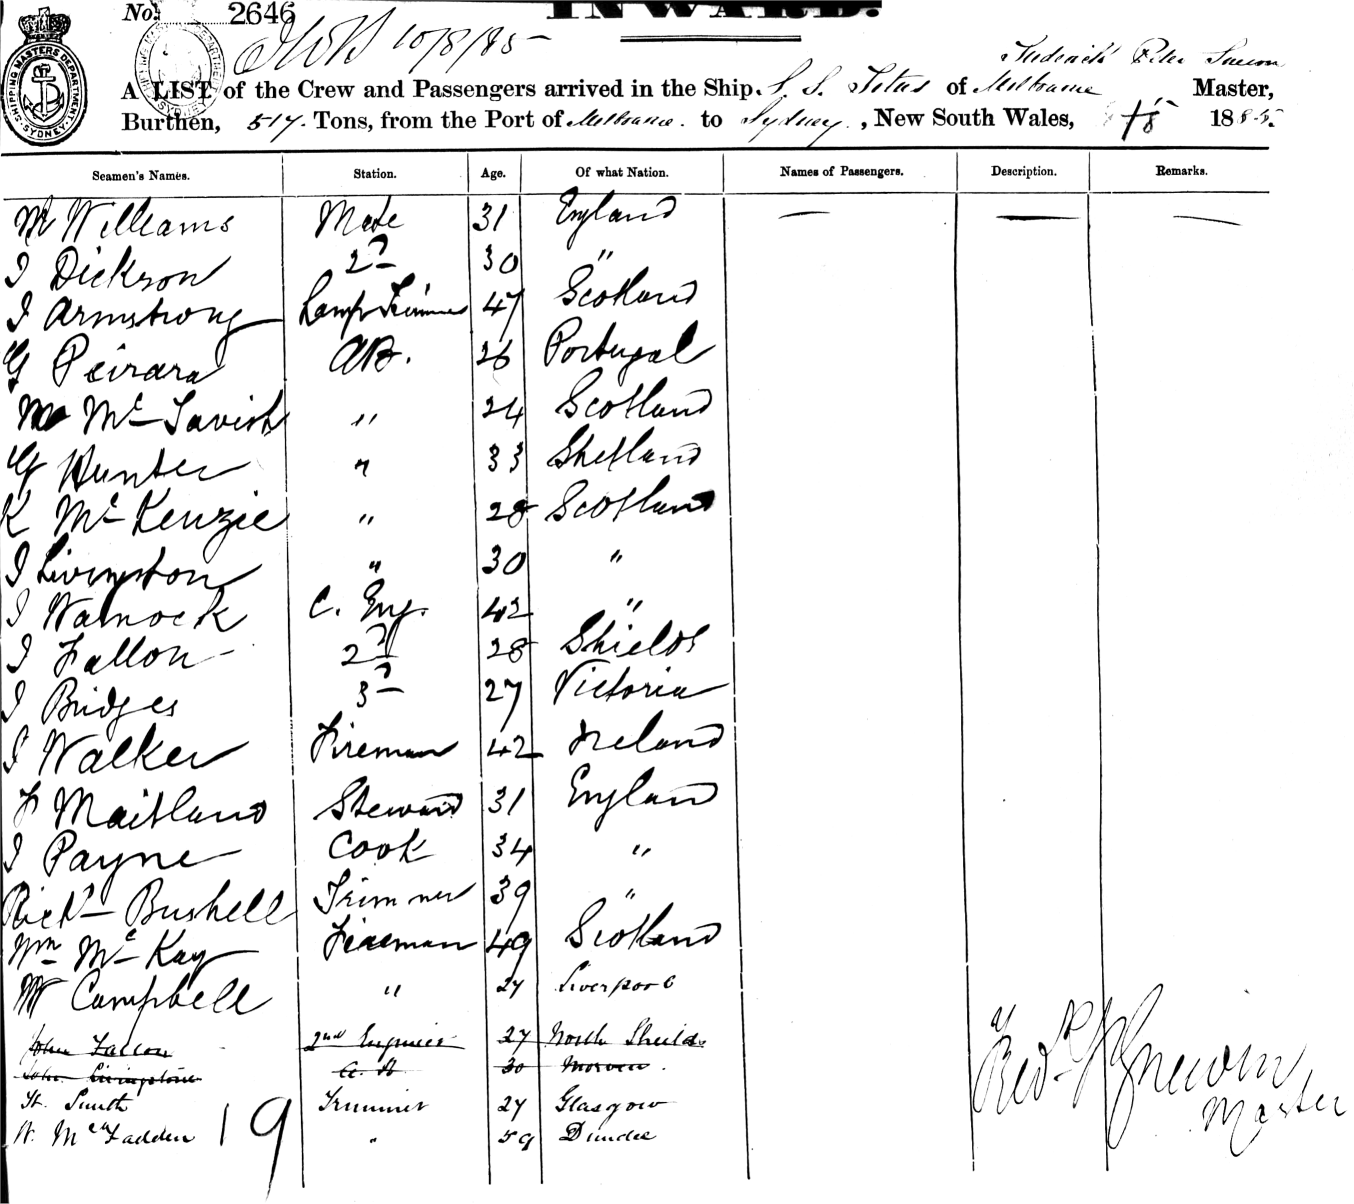 No. 2646 INWARD.
10/8/85
Frederick Peter
A LIST of the Crew and Passengers arrived in the Ship. S. S. Titus of Melbourne Master,
Burthen, 517. Tons, from the Port of Melbourne. to Sydney, New South Wales, 1885.
SHIPPING MASTERS DEPARTMENT SYDNEY
Seamen's Names. Station. Age. Of what Nation. Names of Passengers. Description. Remarks.
W Williams Mate 31 England — — —
J Dickson 2d 30 "
J Armstrong Lamp Trimmer 47 Scotland
G Peirara AB. 26 Portugal
Mc Tavish " 24 Scotland
G Hunter " 33 Shetland
K McKenzie " 28 Scotland
J Livingston " 30 "
J Warnock C. Eng. 42 "
J Fallon 2d 28 Shields
J Bridges 3d 27 Victoria
J Walker Fireman 42 Ireland
F Maitland Steward 31 England
J Payne Cook 34 "
Richd Bushell Trimmer 39 "
Wm McKay Fireman 49 Scotland
W Campbell " 27 Liverpool
John Fallon 2nd Engineer 27 North Shields
John Livingstone A. B 30 Morven
H. Smith Trimmer 27 Glasgow
W. McFadden " 59 Dundee
19
Master